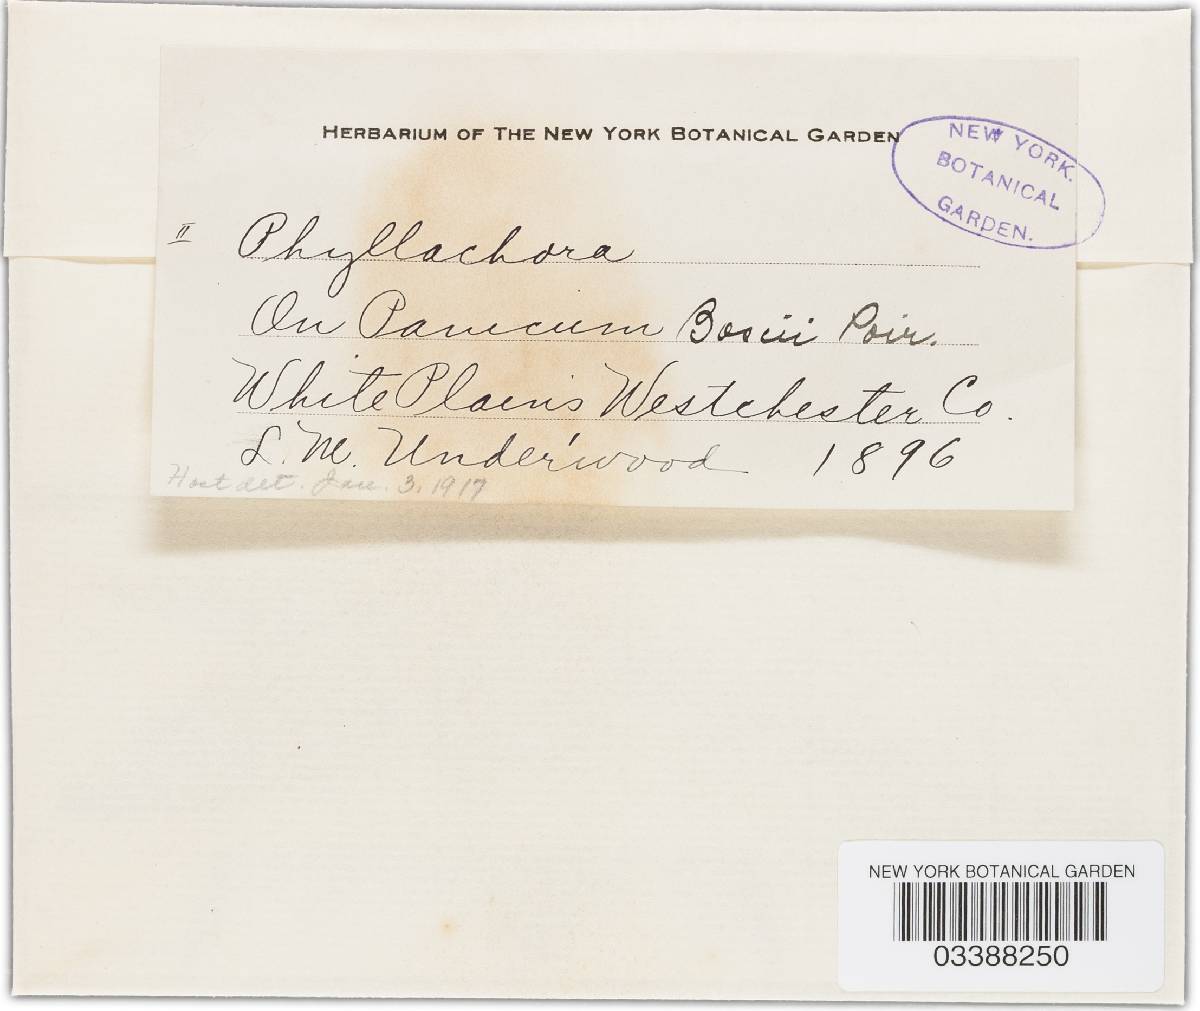 HERBARIUM OF THE NEW YORK BOTANICAL GARDEN
NEW YORK.
BOTANICAL
GARDEN.
II Phyllachora
On Panicum Boscii Poir.
White Plains Westchester Co.
L. M. Underwood 1896
Host det. Jan. 3, 1917
NEW YORK BOTANICAL GARDEN
03388250